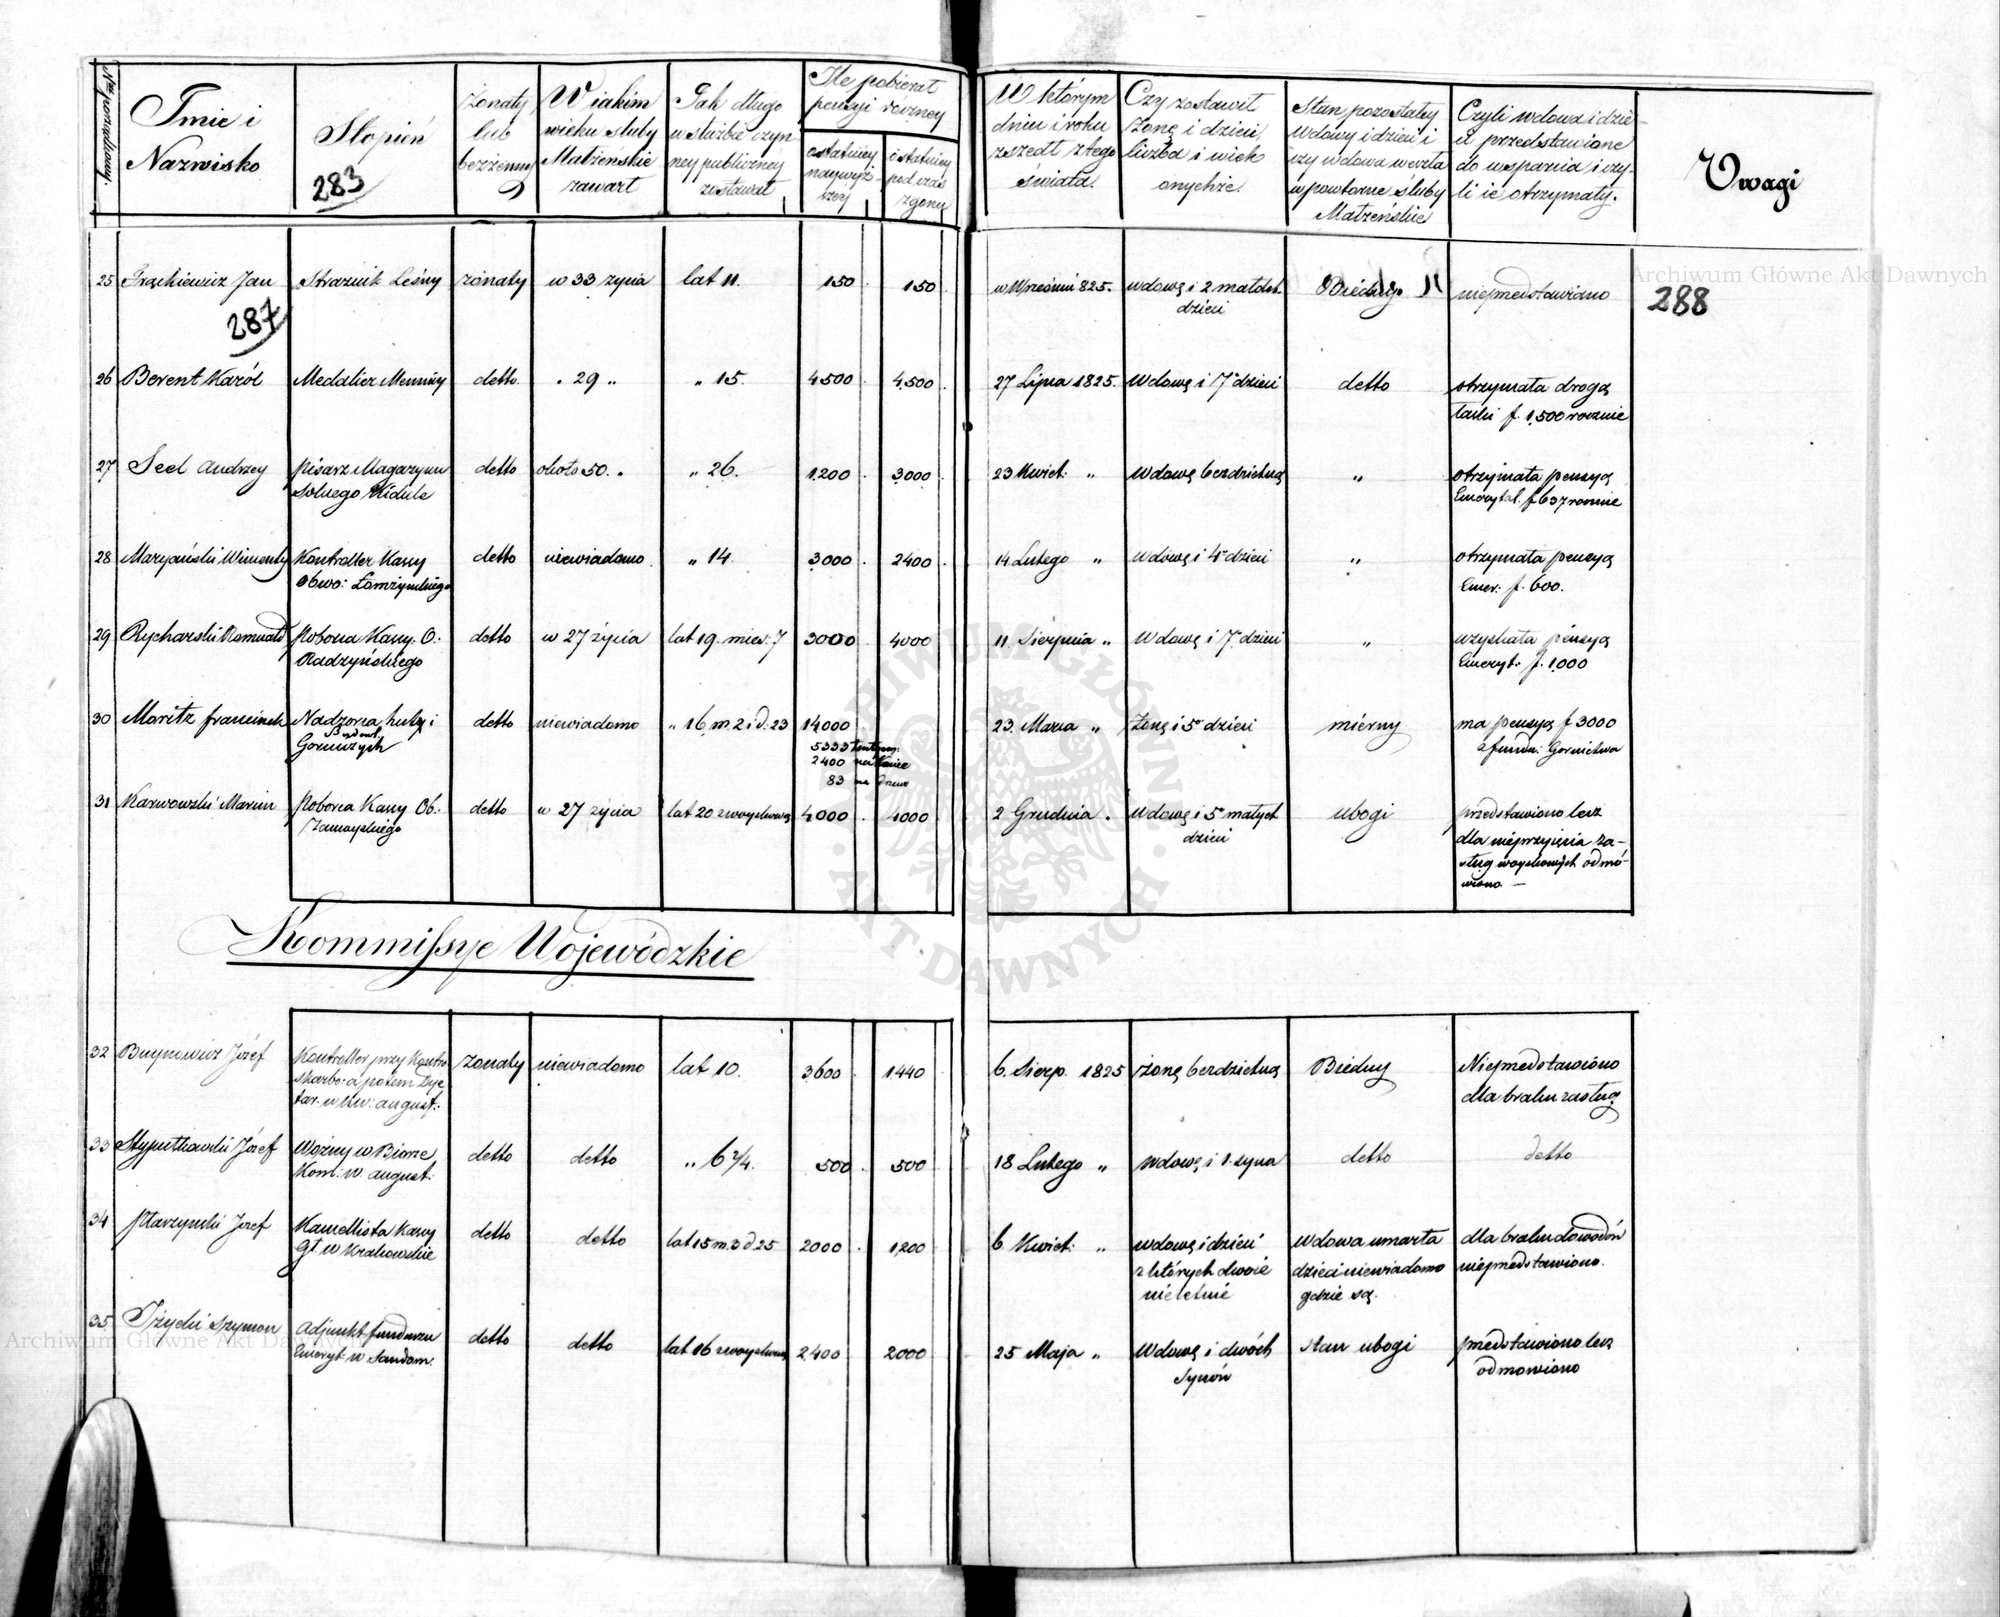 Nro porządkowy.
Imie i
Nazwisko
Stopień
283
żonaty
lub
bezżenny
W iakim
wieku śluby
Małżeńskie
zawarł
Jak długo
w służbie czyn
ney publiczney
zostawał
Ile pobierał
pensyi roczney
ostatniey
naywyż
szey
i statniey
pod czas
zgonu
W którym
dniu i roku
zszedł z tego
świata.
Czy zostawił
żonę i dzieci,
liczba i wiek
onychże.
Stan pozostałey
Wdowy i dzieci i
czy wdowa weszła
w powtorne śluby
Małżeńskie
Czyli wdowa i dzie-
ci przedstawione
do wsparcia i czy-
li ie otrzymały.
Uwagi
25 Jan Strażnik Leśny żonaty w 33 życia lat 11. 150 150 w Wrześniu 825. wdowę i 2 małolet. niepredstawiono
dzieci
287
288
26 Berent Karól Medalier Mennicy detto. " 29 " " 15. 4500 4,500 27 Lipca 1825. Wdowę i 7 dzieci detto otrzymała drogą
łaski f. 1,500 rocznie
27 Seel Andrzey Pisarz Magazynu detto około 50. " " 26. 1200 3000 23 Kwiet. " Wdowę bezdzietną " otrzymała pensyą
Solnego Emerytal. f 637 rocznie
28 Maryański Wincenty Kontroller Kassy detto niewiadomo " 14 3000 2400 14 Lutego " wdowę i 4 dzieci " otrzymała pensyą
Obwo: Łomżyńskiego Emer: f. 600.
29 Rycharski Romuald Poborca Kassy. O. detto w 27 życia lat 19. mies. 7 3000 4000 11 Sierpnia " Wdowę i 7 dzieci " uzyskała pensyą
Radzyńskiego Emeryt: f. 1,000
30 Moritz Franciszek Nadzorca huty i detto niewiadomo " 16 m. 2 i d. 23 14000 23. Marca " żonę i 5 dzieci mierny ma pensyą f 3000
Budowl
Gorniczych 5333 z fundu: Gornictwa
2400 na konie
83 na drzewo
31 Karwowski Marcin Poborca Kassy Ob: detto w 27 życia lat 20 z woyskową 4000 4000 2 Grudnia " Wdowę i 5 małych ubogi przedstawiono lecz
Zamoyskiego dzieci dla nieprzyięcia za-
sług woyskowych odmó-
wiono —
Kommissye Wojewódzkie
32 Józef Kontroller przy Kontro żonaty niewiadomo lat 10. 3600 1440 6. Sierp. 1825 żonę bezdzietną Biédny Nieprzedstawiono
Skarbo: a potem Dye dla braku zasług.
tar. w Kw: august:
33 Józef Woźny w Biorze detto detto " 6 2/4. 500 500 18 Lutego " wdowę i 1. syna detto detto
Kom: W. august:
34 Józef Kancellista Kassy detto detto lat 15 m. 3 d 25 2000 1,200 6 Kwiet: " wdowę i dzieci wdowa umarła dla braku dowodów
Gł. W Krakowskie z których dwoie dzieci niewiadomo nieprzedstawiono.
nieletnie gdzie są.
35 Iżycki Szymon Adjunkt funduszu detto detto lat 16 z woyskową 2,400 2000 25 Maja " Wdowę i dwóch stan ubogi przedstawiono lecz
Emeryt: w Sandom. Synów odmowiono
Archiwum Główne Akt Dawnych
Archiwum Główne Akt Dawnych
ARCHIWUM GŁÓWNE · AKT · DAWNYCH ·